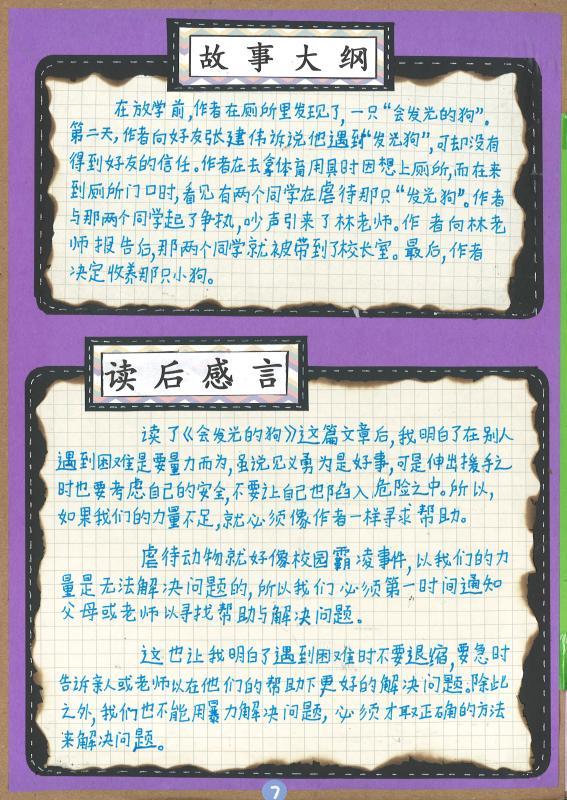 故事大纲
在放学前,作者在厕所里发现了,一只“会发光的狗”。
第二天,作者向好友张建伟诉说他遇到“发光狗”,可却没有
得到好友的信任。作者在去拿体育用具时因想上厕所,而在来
到厕所门口时,看见有两个同学在虐待那只“发光狗”。作者
与那两个同学起了争执,吵声引来了林老师。作者向林老
师报告后,那两个同学就被带到了校长室。最后,作者
决定收养那只小狗。
读后感言
读了《会发光的狗》这篇文章后,我明白了在别人
遇到困难是要量力而为,虽说见义勇为是好事,可是伸出援手之
时也要考虑自己的安全,不要让自己也陷入危险之中。所以,
如果我们的力量不足,就必须像作者一样寻求帮助。
虐待动物就好像校园霸凌事件,以我们的力
量是无法解决问题的,所以我们必须第一时间通知
父母或老师以寻找帮助与解决问题。
这也让我明白了遇到困难时不要退缩,要急时
告诉亲人或老师以在他们的帮助下更好的解决问题。除此
之外,我们也不能用暴力解决问题,必须才取正确的方法
来解决问题。
7